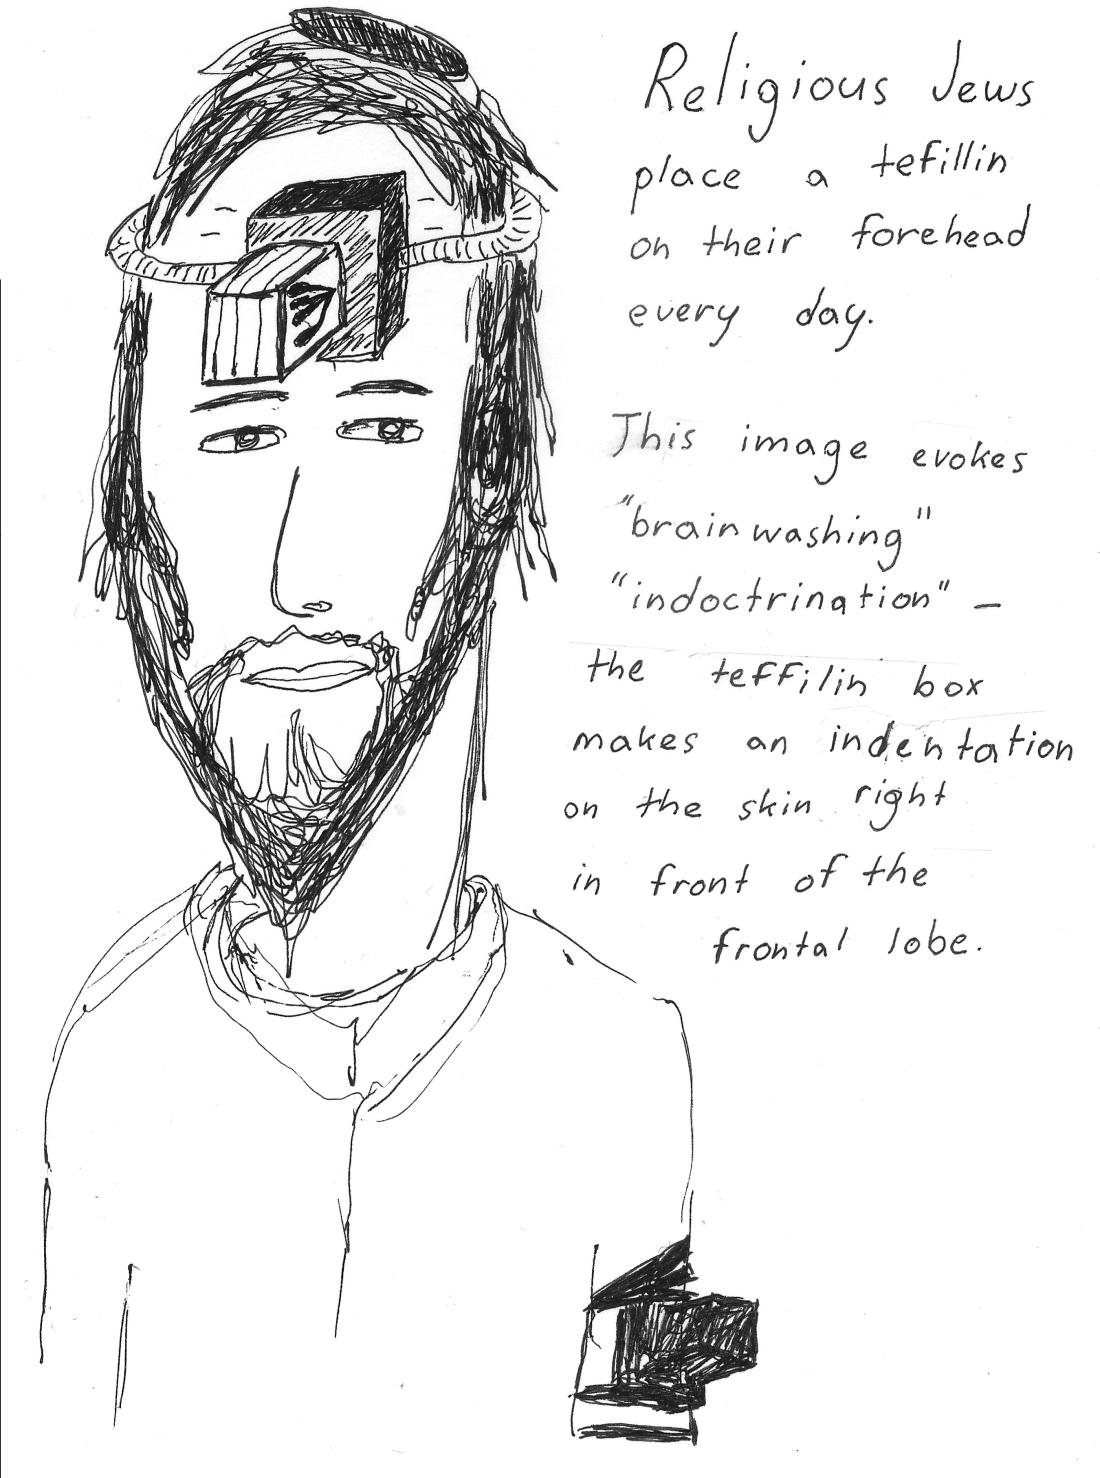 Religious Jews
place a tefillin
on their forehead
every day.
This image evokes
"brainwashing"
"indoctrination" –
the teffilin box
makes an indentation
on the skin right
in front of the
frontal lobe.